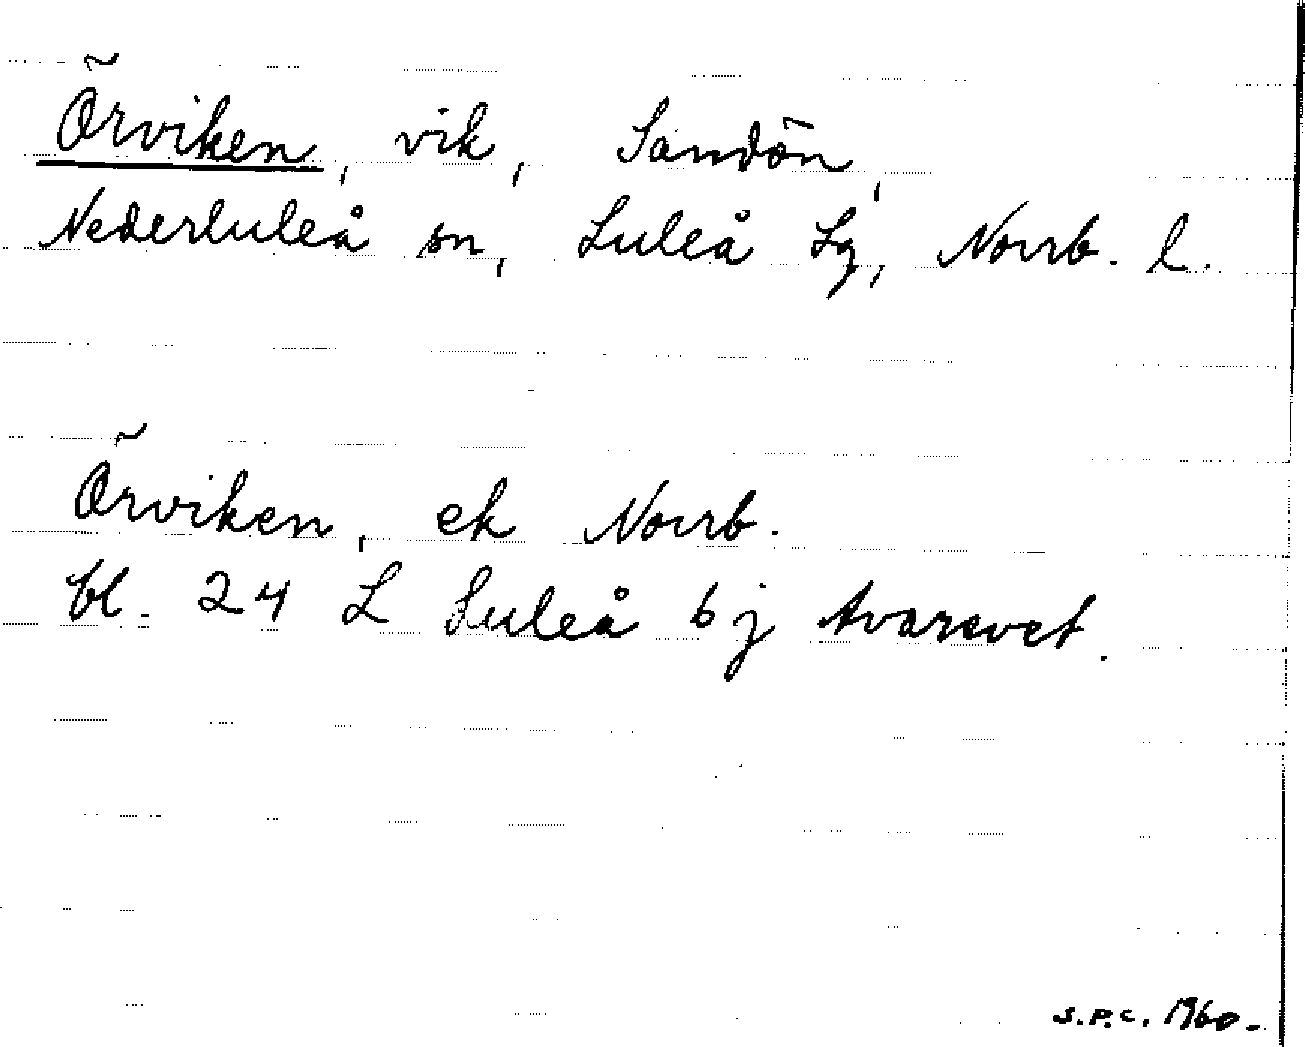 Örviken, vik, Sandön,
Nederluleå sn, Luleå Lg, Norrb. l.
Örviken, ek Norrb.
bl. 24 L Luleå 6 j Avarevet.
S.P.C. 1960.